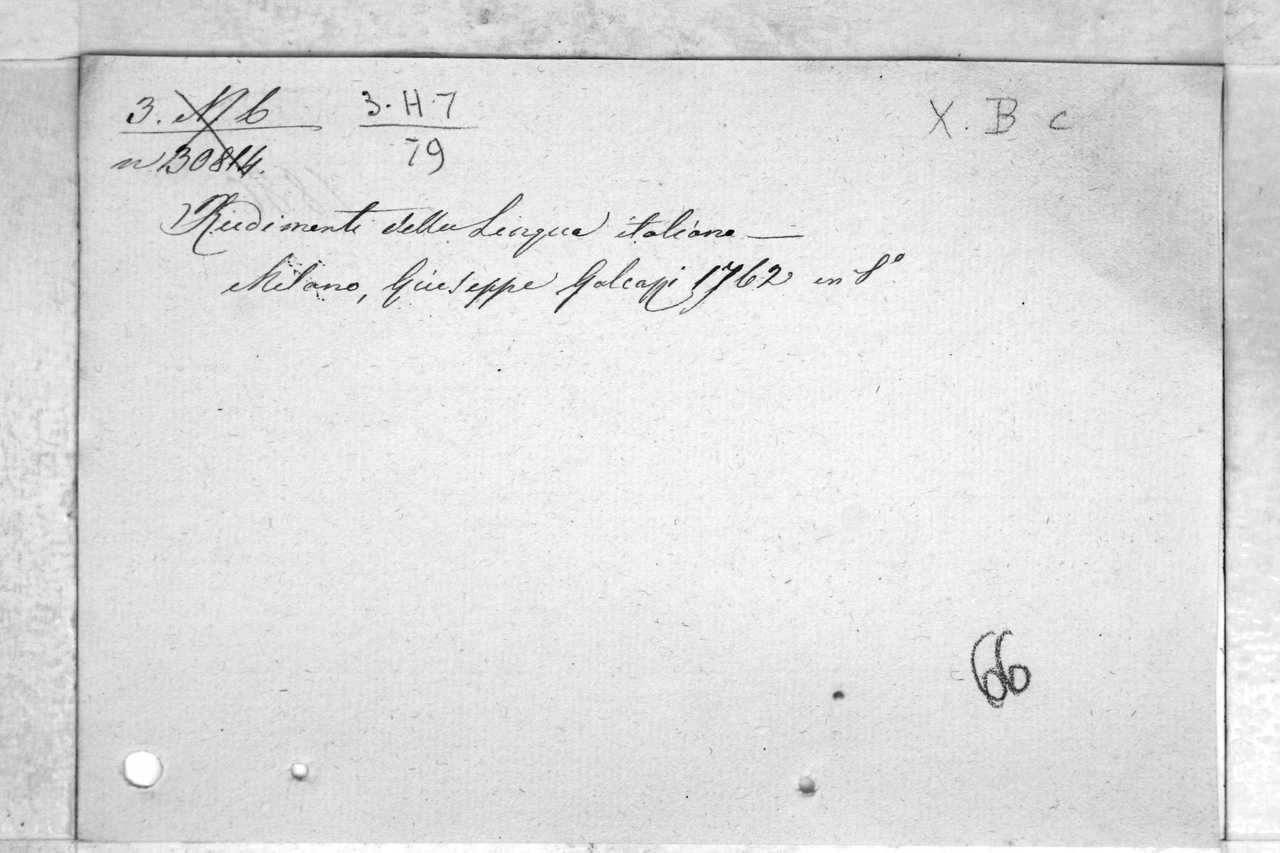 3. N b 3·H·7 X. B c
n 30814. 79
Rudimenti della Lingua italiana —
Milano, Giuseppe Galeazzi 1762 in 8°
66